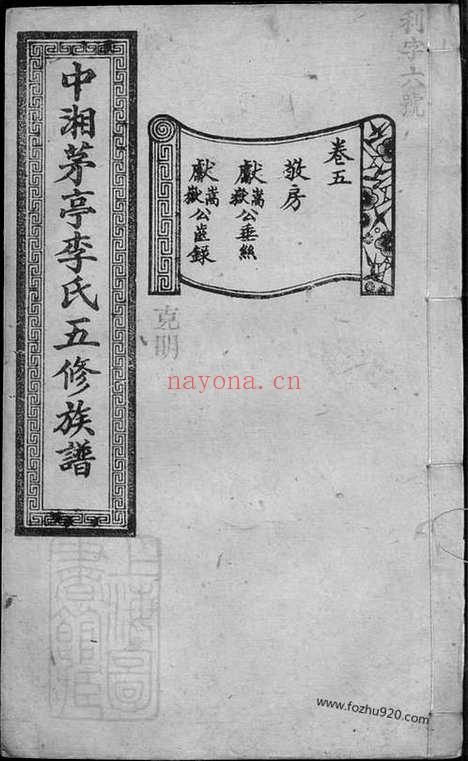 利字六號
卷五
敬房
獻嵩嶽公垂絲
獻嵩嶽公齒錄
克明
中湘茅亭李氏五修族譜
上海圖書館藏
nayona.cn
www.fozhu920.com